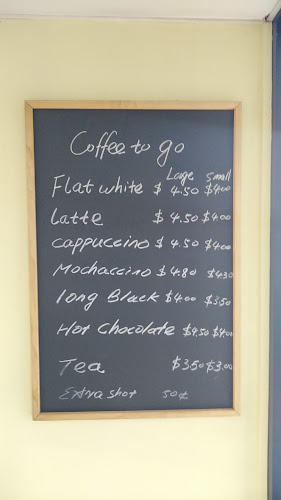 Coffee to go
Large Small
Flat white $ 4.50 $4.00
Latte $ 4.50 $4.00
cappuccino $ 4.50 $4.00
Mochaccino $4.80 $4.30
long Black $4.00 $3.50
Hot chocolate $4.50 $4.00
Tea $3.50 $3.00
Extra shot 50¢